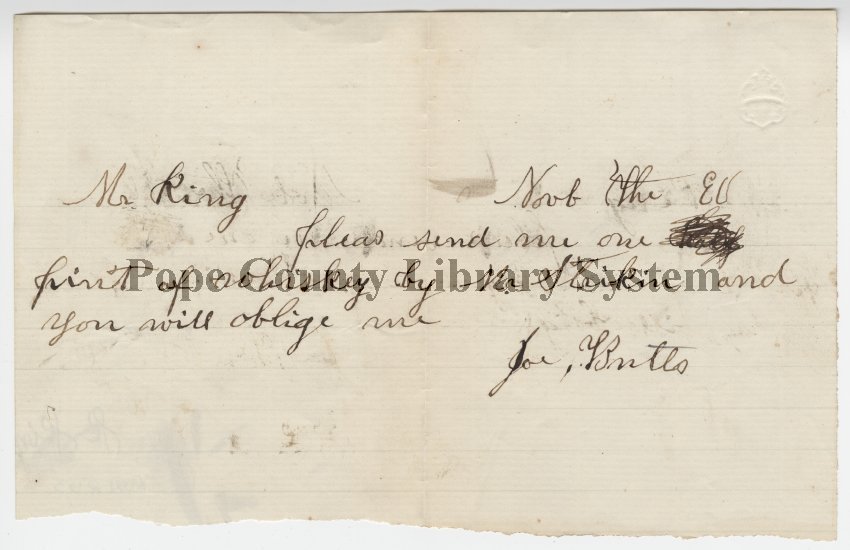 Mr King Novb the Ell
pleas send me one
pint of whiskey by Mr and
you will oblige me
Joe, Butts
Pope County Library System